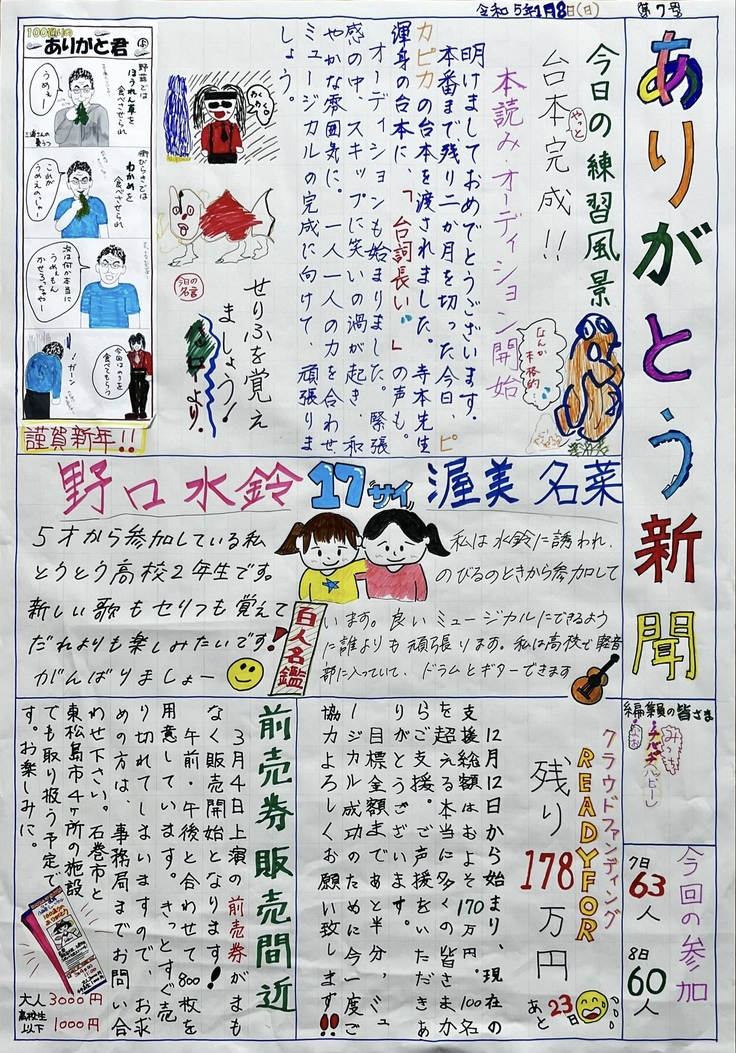 令和5年1月8日(日)
第7号
ありがとう新聞
今日の練習風景
台本完成!!
やっと
本読み・オーディション開始
なんか本格的…
明けましておめでとうございます。
本番まで残り二か月を切った今日、ピ
カピカの台本を渡されました。寺本先生
渾身の台本に、「台詞長い」の声も。
オーディションも始まりました。緊張
感の中、スキップに笑いの渦が起き、和
やかな雰囲気に。一人一人の力を合わせ、
ミュージカルの完成に向けて、頑張りま
しょう。
今日の名言
せりふを覚え
ましょう!
より。
ありがと君
野蒜では
ほうれん草を
食べさせられ
うめぇー
わかめを
食べさせられ
これが
うめえのじゃー
次は何か本当に
うめぇもん
かせろっちゃやー
今回はのりを
食べてもらう
!ガーン
謹賀新年!!
野口水鈴
17サイ
渥美名菜
5才から参加している私
とうとう高校2年生です。
新しい歌もセリフも覚えて
だれよりも楽しみたいです!
がんばりましょー
百人名鑑
私は水鈴に誘われ、
のびるのときから参加して
います。良いミュージカルにできるよう
に誰よりも頑張ります。私は高校で軽音
部に入っていて、ドラムとギターできます
編集の皆さま
みっち
今回の参加
7日
63人
8日
60人
クラウドファンディング
READYFOR
残り178万円
あと23日
12月12日から始まり、現在の
支援総額はおよそ170万円。100名
を超える本当に多くの皆さまか
らご支援。ご声援をいただきあ
りがとうございます。
目標金額まであと半分、ミュ
ージカル成功のために今一度ご
協力よろしくお願い致します!!
前売券販売間近
3月4日上演の前売券がまも
なく販売開始となります!
午前・午後と合わせて800枚を
用意しています。きっとすぐ売
り切れてしまいますので、お求
めの方は、事務局までお問い合
わせ下さい。石巻市と
東松島市4ヶ所の施設
でも取り扱う予定で
す。お楽しみに。
大人3000円
高校生以下1000円